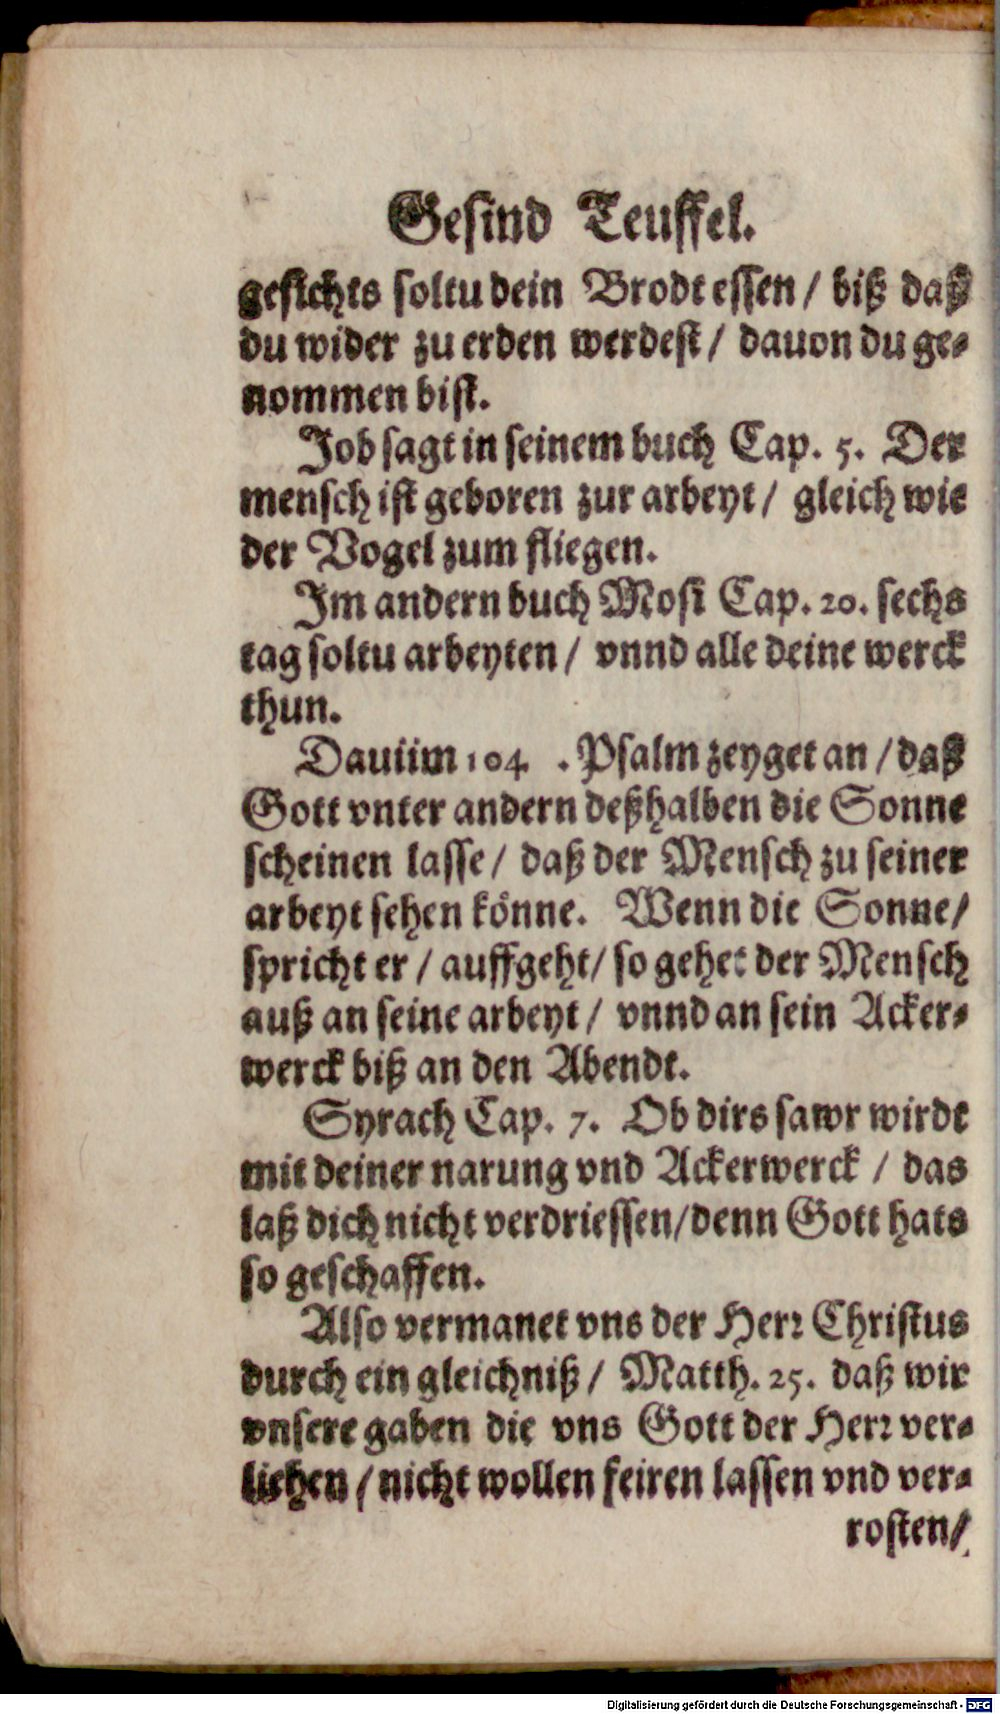 Gesind Teuffel.
gesichts soltu dein Brodt essen / biß daß
du wider zu erden werdest / dauon du ge-
nommen bist.
Job sagt in seinem buch Cap. 5. Der
mensch ist geboren zur arbeyt / gleich wie
der Vogel zum fliegen.
Im andern buch Mosi Cap. 20. sechs
tag soltu arbeyten / vnnd alle deine werck
thun.
Dauiim 104 . Psalm zeyget an / daß
Gott vnter andern deßhalben die Sonne
scheinen lasse / daß der Mensch zu seiner
arbeyt sehen könne. Wenn die Sonne /
spricht er / auffgeht / so gehet der Mensch
auß an seine arbeyt / vnnd an sein Acker-
werck biß an den Abendt.
Syrach Cap. 7. Ob dirs sawr wirdt
mit deiner narung vnd Ackerwerck / das
laß dich nicht verdriessen / denn Gott hats
so geschaffen.
Also vermanet vns der Herr Christus
durch ein gleichniß / Matth. 25. daß wir
vnsere gaben die vns Gott der Herr ver-
liehen / nicht wollen feiren lassen vnd ver-
rosten /
Digitalisierung gefördert durch die Deutsche Forschungsgemeinschaft - DFG